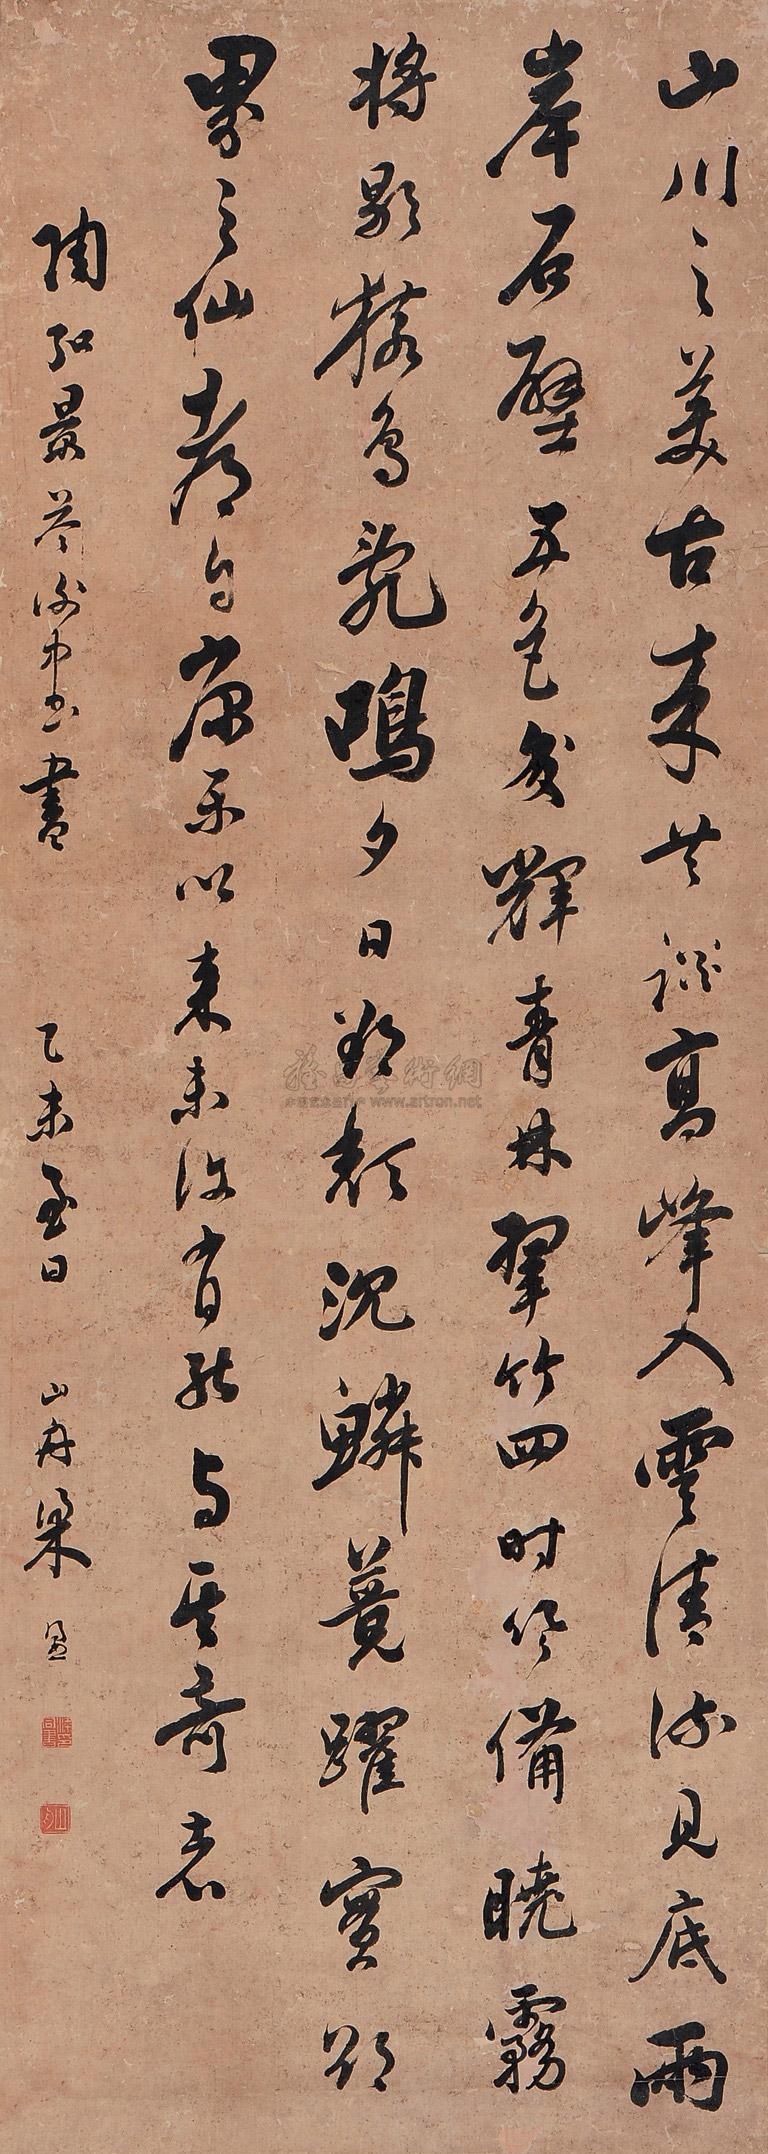 山川之美古來共談高峰入雲清流見底兩
岸石壁五色交輝青林翠竹四時俱備曉霧
將歇猿鳥亂鳴夕日欲頹沉鱗競躍實欲
界之仙都自康樂以來未復有能與其奇者
陶弘景答謝中書書 乙未至日 山舟梁
雅昌藝術網
www.artron.net